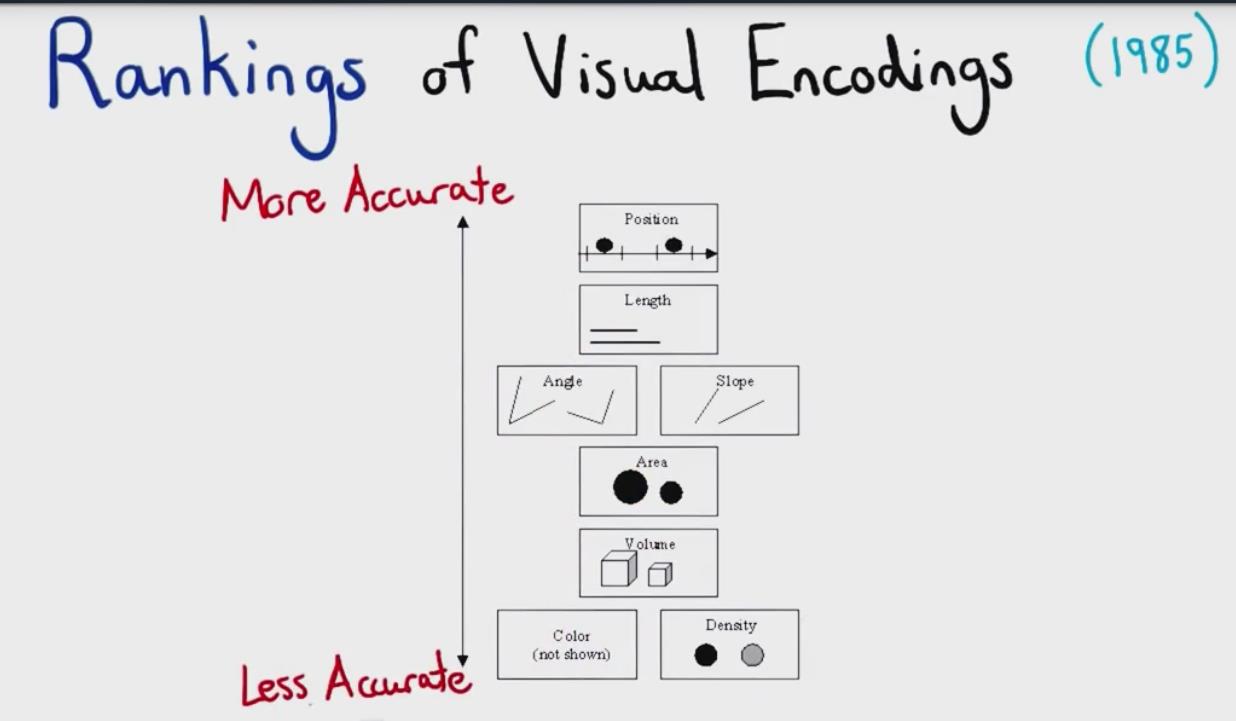 Rankings of Visual Encodings (1985)
More Accurate
Position
Length
Angle Slope
Area
Volume
Color
(not shown)
Density
Less Accurate